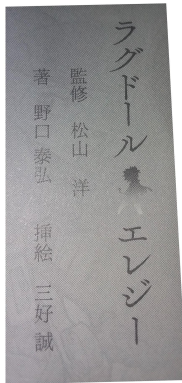 ラグドール エレジー
監修 松山 洋
著 野口泰弘 挿絵 三好 誠